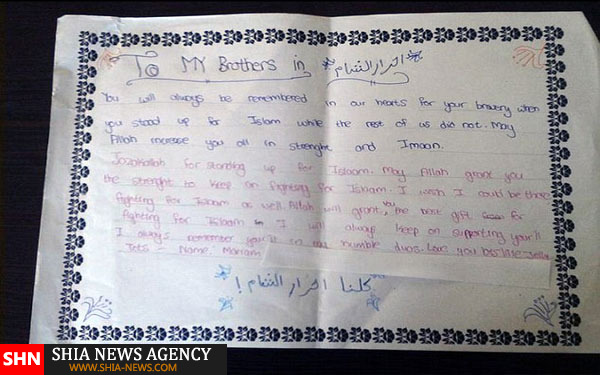 To MY Brothers in احرار الشام
You will always be remembered in our hearts for your bravery when
you stood up for Islam while the rest of us did not. May
Allah increase you all in strenght and Imaan.
Jazakallah for standing up for Islaam. May Allah grant you
the strenght to keep on fighting for Islaam. I wish I could be there
fighting for Islaam as well. Allah will grant you the best gift for
fighting for Islaam I will always keep on supporting you'll
I always remember you'll in my humble duas. Love you
Name: Mariam
كلنا احرار الشام!
SHN SHIA NEWS AGENCY
WWW.SHIA-NEWS.COM